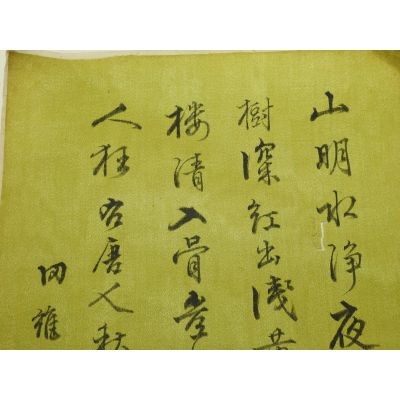 山明水淨夜
樹深紅出淺黃
楼清入骨豈
人狂右唐人